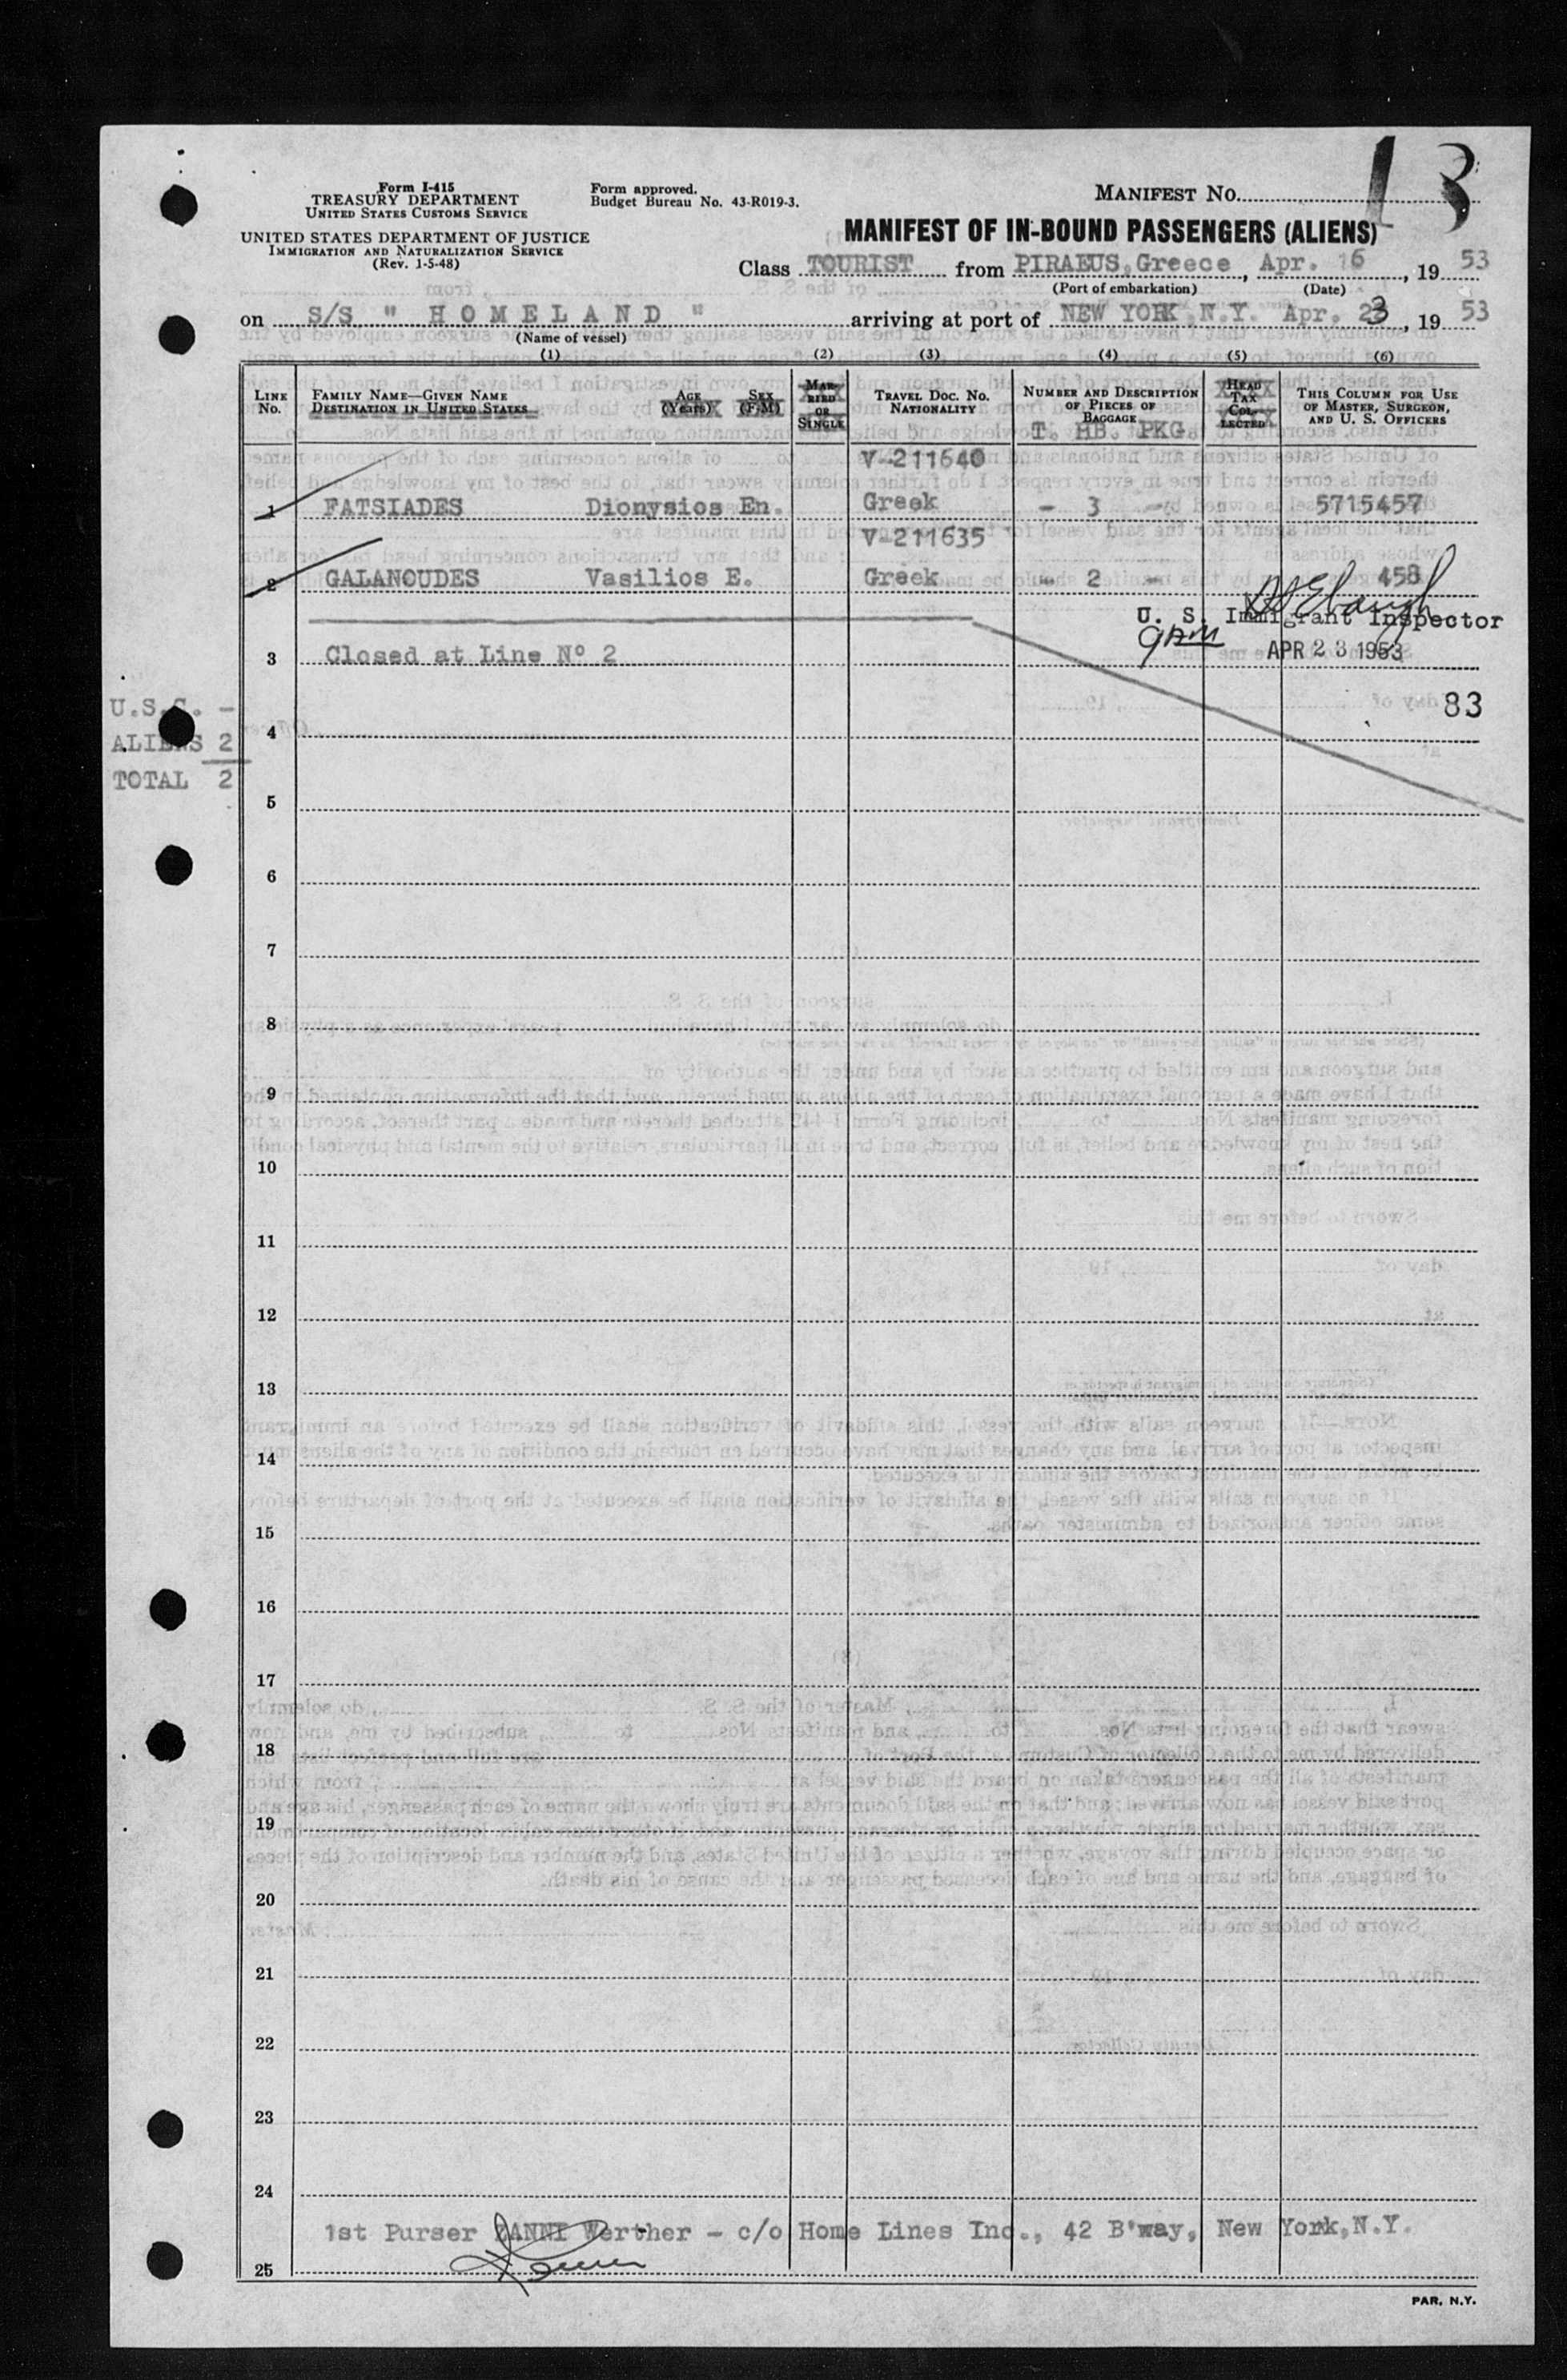 13
Form I-415
TREASURY DEPARTMENT
UNITED STATES CUSTOMS SERVICE
UNITED STATES DEPARTMENT OF JUSTICE
IMMIGRATION AND NATURALIZATION SERVICE
(Rev. 1-5-48)
Form approved.
Budget Bureau No. 43-R019-3.
MANIFEST No.
MANIFEST OF IN-BOUND PASSENGERS (ALIENS)
Class TOURIST from PIRAEUS, Greece, Apr. 16, 19 53
(Port of embarkation) (Date)
on S/S " H O M E L A N D " arriving at port of NEW YORK, N.Y. Apr. 23, 19 53
(Name of vessel)
(1) (2) (3) (4) (5) (6)
LINE No.
FAMILY NAME—GIVEN NAME
DESTINATION IN UNITED STATES
AGE (Years)
SEX (F-M)
MARRIED OR SINGLE
TRAVEL DOC. NO.
NATIONALITY
NUMBER AND DESCRIPTION
OF PIECES OF
BAGGAGE
T. HB. PKG.
HEAD TAX COLLECTED
THIS COLUMN FOR USE
OF MASTER, SURGEON,
AND U. S. OFFICERS
V-211640
1 FATSIADES Dionysios En. Greek - 3 - 5715457
V-211635
2 GALANOUDES Vasilios E. Greek - 2 - 458
U. S. Immigrant Inspector
9 AM
APR 23 1953
3 Closed at Line Nº 2
83
U.S.C. -
ALIENS 2
TOTAL 2
4
5
6
7
8
9
10
11
12
13
14
15
16
17
18
19
20
21
22
23
24
1st Purser ZANNI Werther - c/o Home Lines Inc., 42 B'way, New York, N.Y.
25
PAR. N.Y.